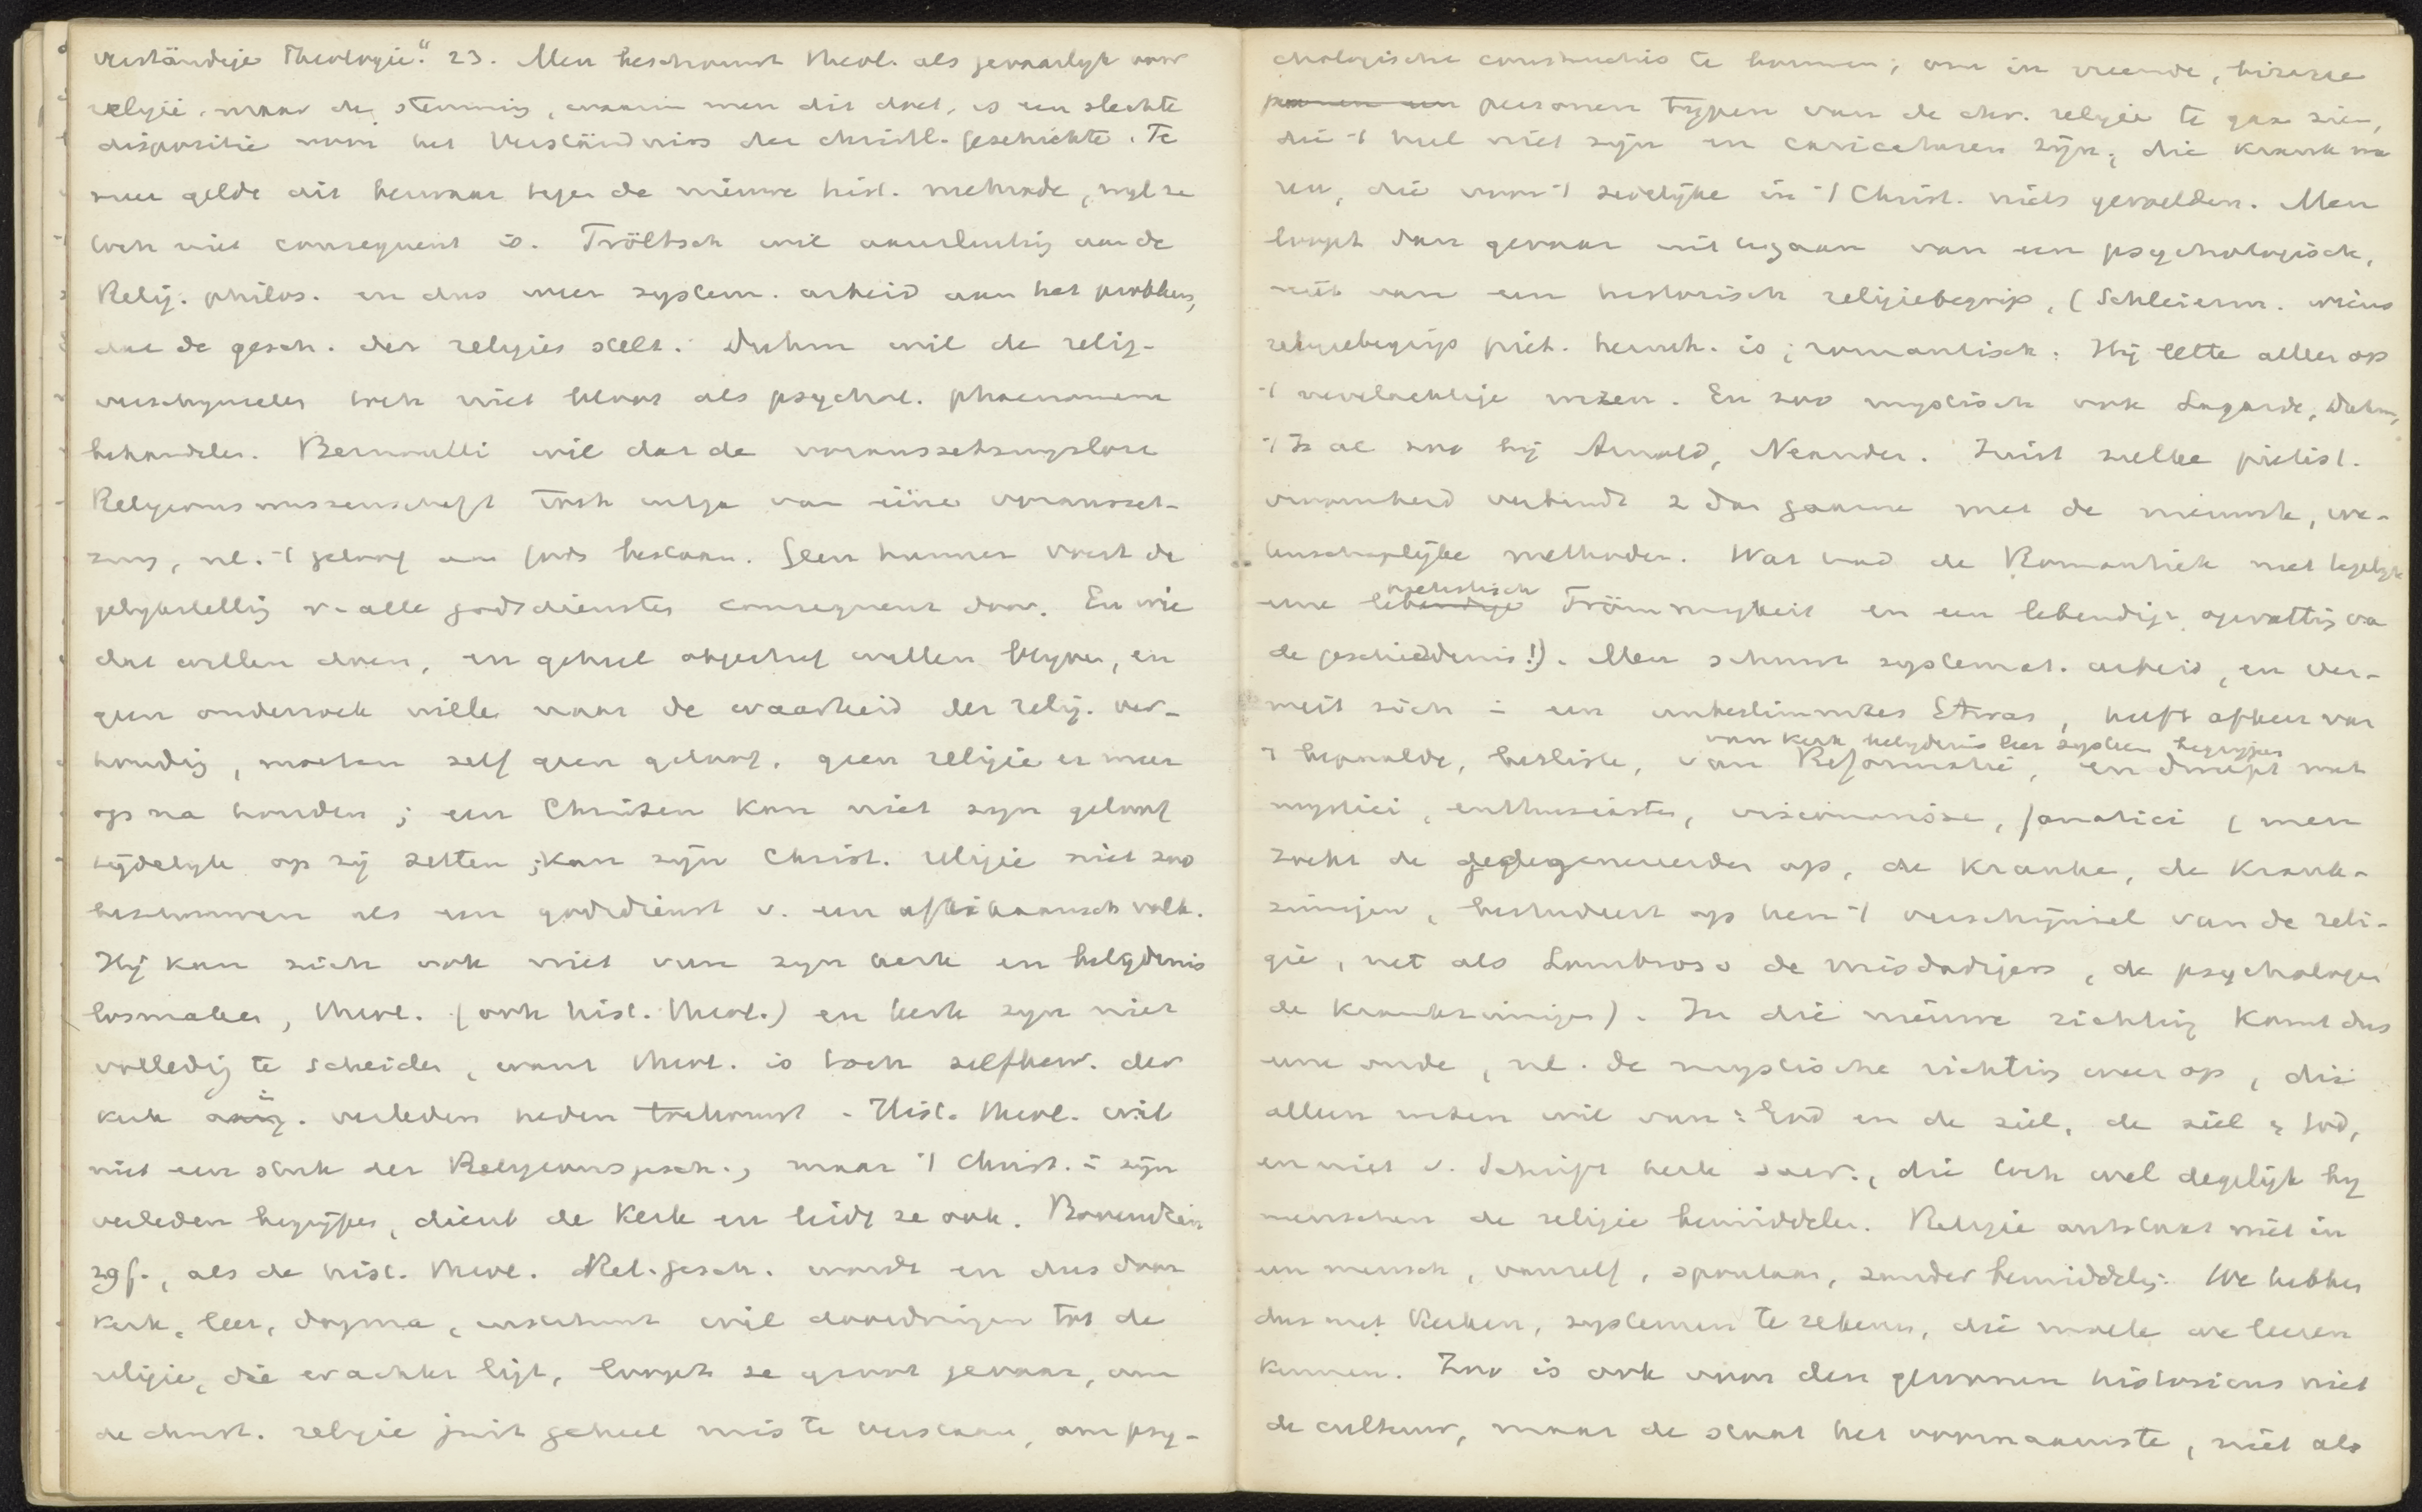 verständige Theologie". 23. Men beschouwt theol. als gevaarlyk voor
religie. maar de stemming, waarin men dit doet, is een slechte
dispositie voor het Verständniss der christl. Geschichte. Te
meer geldt dit bezwaar tegen de nieuwe hist. methode, wyl ze
toch niet consequent is. Tröltsch wil aansluiting aan de
Relig. philos. en dus meer system. arbeid aan het probleem,
dat de gesch. der religies stelt. Duhm wil de relig.
verschynselen toch niet bloot als psychol. phaenomena
behandelen. Bernoulli wil dat de voraussetzungslose
Religionswissenschaft toch uitga van eine Vorausset-
zung, nl. 't geloof aan Gods bestaan. Geen hunner voert de
gelykstelling v. alle godsdiensten consequent door. En wie
dat willen doen, en geheel objectief willen blyven, en
geen onderzoek willen naar de waarheid der relig. ver-
houding, moeten zelf geen geloof, geen religie er meer
op na houden; een Christen kan niet zyn geloof
tydelyk op zij zetten; kan zijn Christ. religie niet zoo
beschouwen als een godsdienst v. een afrikaansch volk.
Hij kan zich ook niet van zyn kerk en belydenis
losmaken, theol. (ook hist. theol.) en kerk zyn niet
volledig te scheiden, want theol. is toch zelfbew. der
kerk verleden heden toekomst. Hist. theol. wil
niet een stuk der Religionsgesch., maar 't Christ. in zijn
verleden begrijpen, dient de Kerk en leidt ze ook. Bovendien
zgf., als de hist. theol. Rel. gesch. wordt en dus door
kerk, leer, dogma, enz. wil doordringen tot de
religie, die erachter ligt, loopt ze groot gevaar, om
de christ. religie juist geheel mis te verstaan, om psy-
chologische constructies te bouwen; om in vreemde, bizarre
personen typen van de chr. religie te gaan zien,
die 't heel niet zijn en caricaturen zijn; die krank wa
ren, die voor 't zedelijke in 't Christ. niets gevoelden. Men
loopt dan gevaar uit te gaan van een psychologisch,
niet van een historisch religiebegrip. (Schleierm. wiens
religiebegrip piët. hernh. is; romantisch. Hij lette alleen op
't innerlyke wezen. En zoo mystisch ook Lagarde, Duhm,
't Is al zoo bij Arnold, Neander. Juist zulke piëtist.
vroomheid verbindt z dan gaarne met de nieuwste, we-
tenschaplijke methoden. Wat had de Romantiek niet tegelyk
eene aesthetisch Frömmigkeit en een lebendige opvatting va
de geschiedenis!). Men schuwt systemat. arbeid, en ver-
meit zich in een unbestimmtes Etwas, heeft afkeer van
't bepaalde, besliste, van Reformatie, van kerk belydenis leer system begrippen en dweept met
mystici, enthusiasten, visionaire, fanatici (men
zoekt de gedegenereerden op, de kranke, de krank-
zinnigen, bestudeert op hen 't verschijnsel van de reli-
gie, net als Lombroso de misdadigers, de psychologen
de krankzinnigen). In die nieuwe richting komt dus
eene oude, nl. de mystische richting weer op, die
alleen weten wil van: God en de ziel, de ziel & God,
en niet v. Schrift kerk sacr., die toch wel degelijk by
menschen de religie bemiddelen. Religie ontstaat niet in
een mensch, vanzelf, spontaan, zonder bemiddeling. We hebben
dus met Kerken, systemen te rekenen, die moeten we leeren
kennen. Zoo is ook voor den gewonen historicus niet
de cultuur, maar de staat het voornaamste, niet als